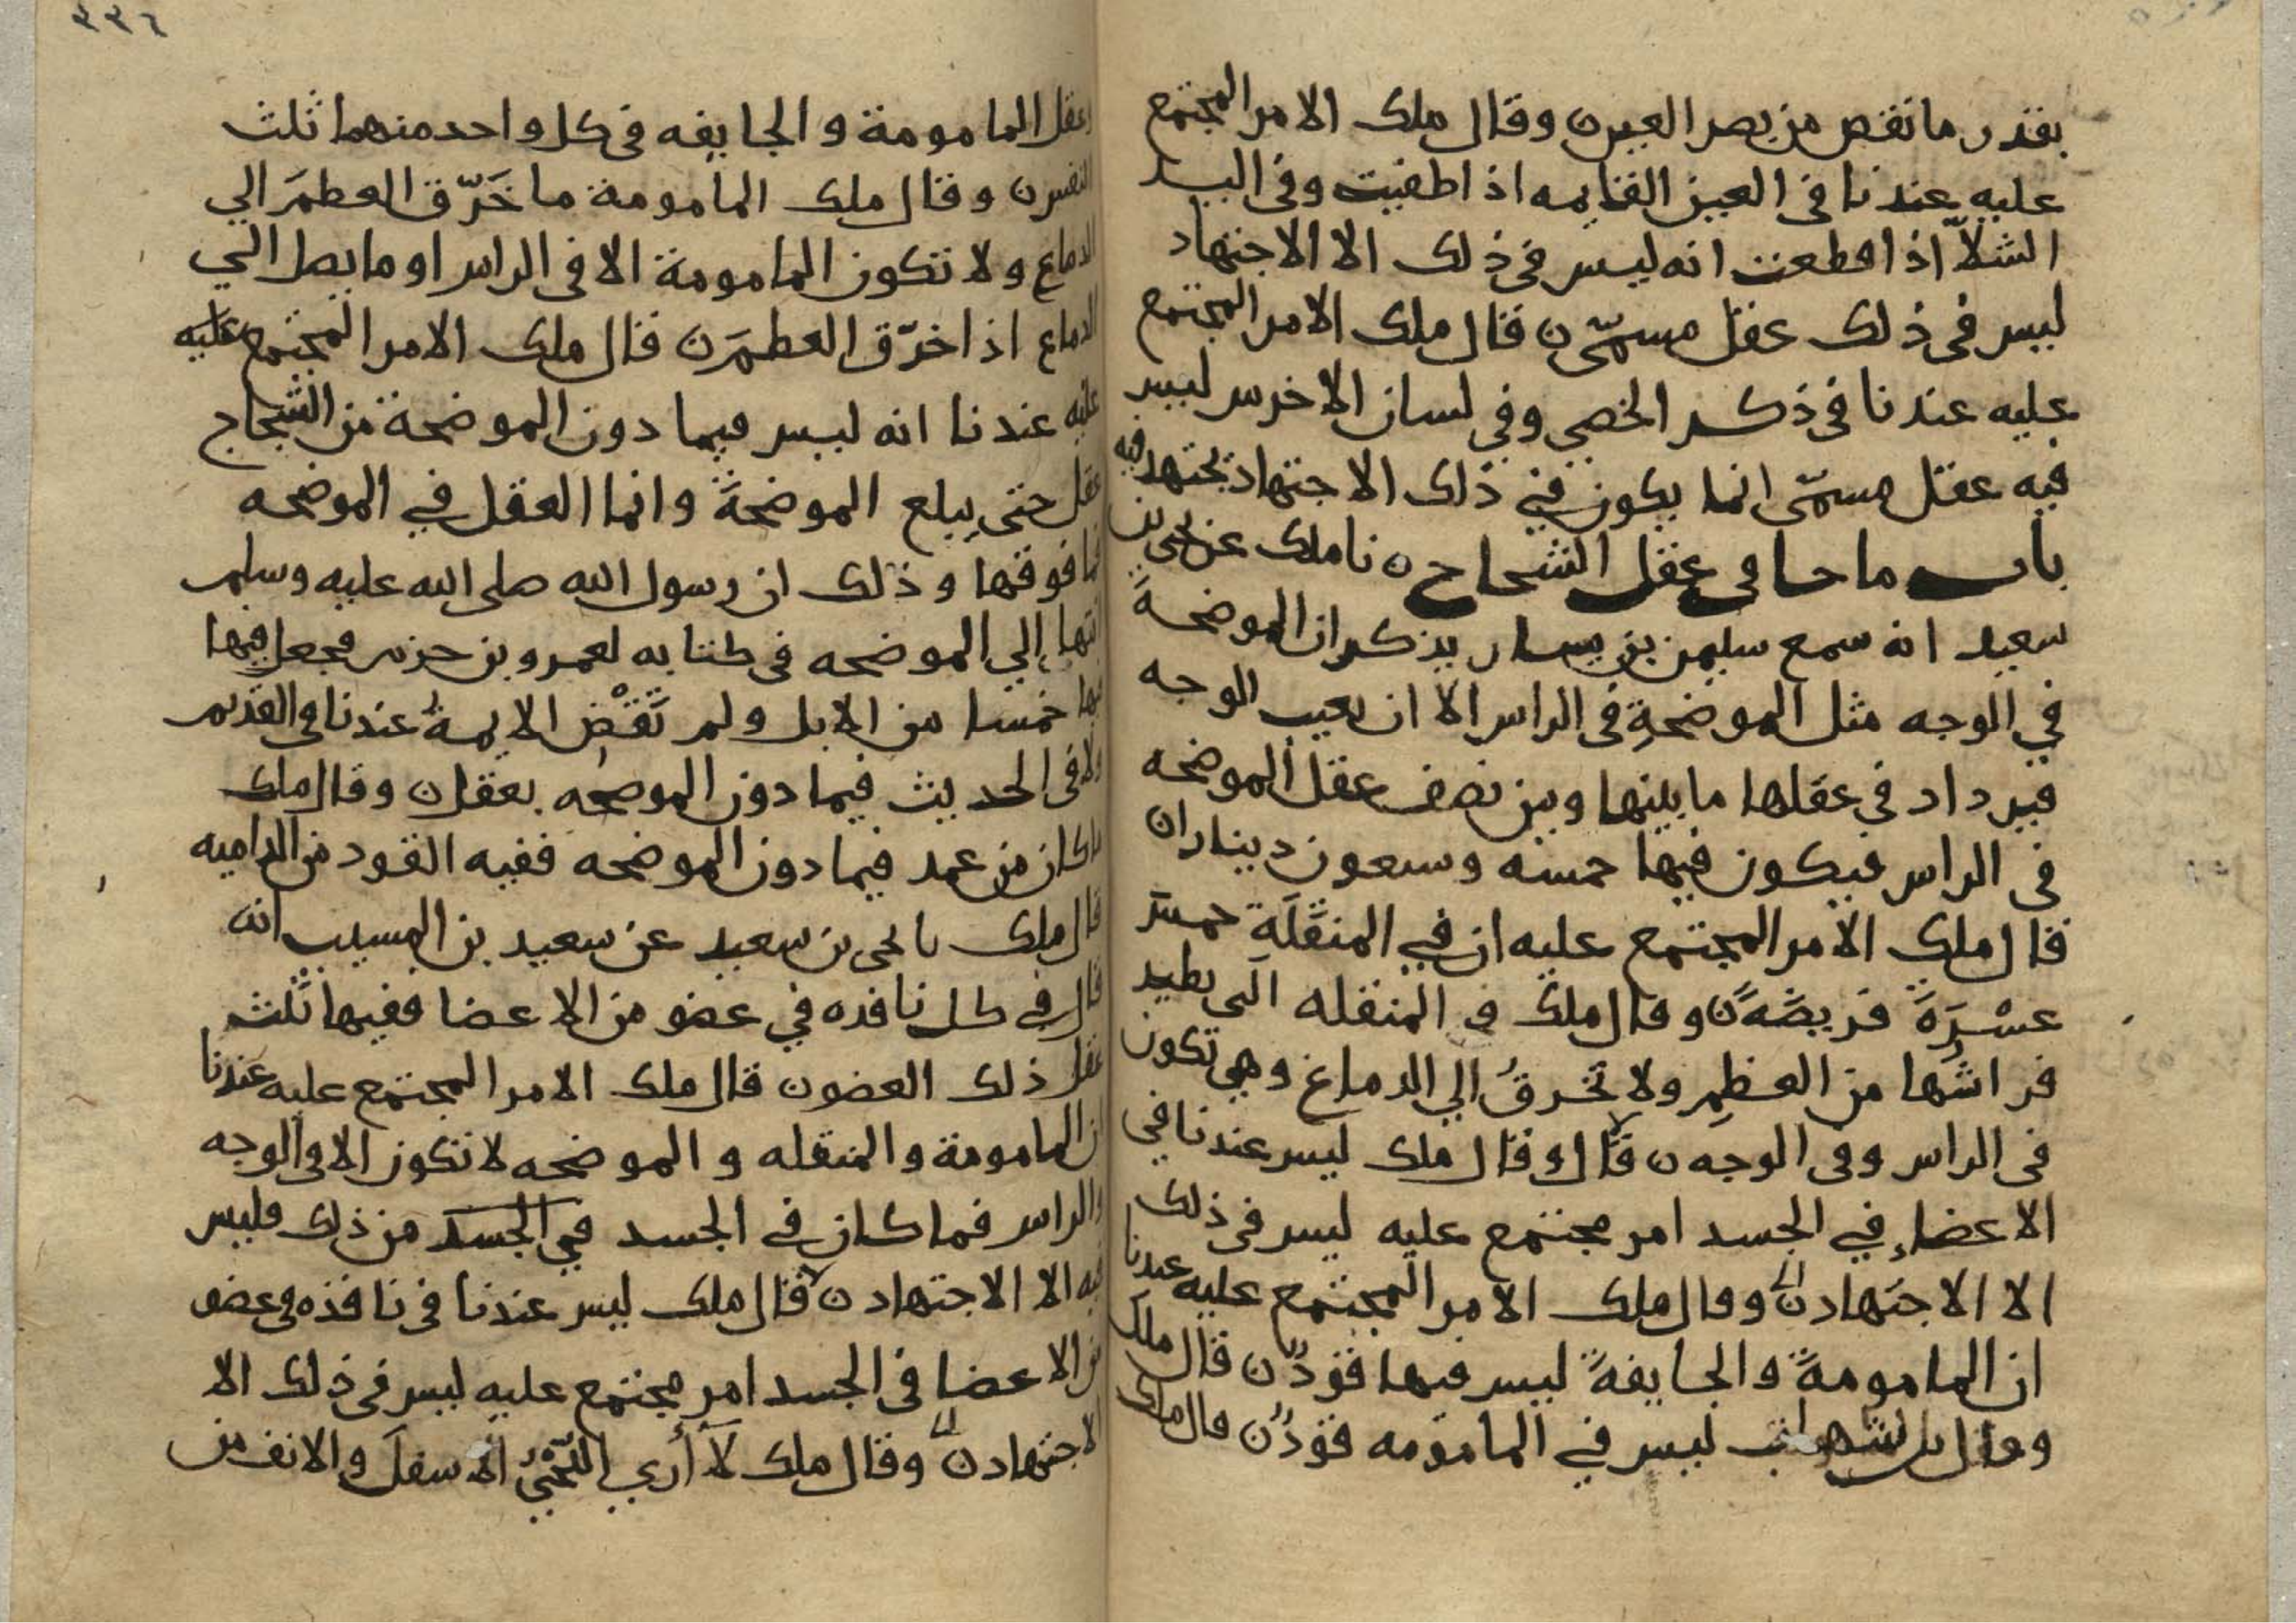 بقدر ما نقص من بصر العين ٥ وقال ملك الامر المجتمع
عليه عندنا في العين القايمه اذا طفيت وفي اليد
الشلا اذا قطعت انه ليس في ذلك الا الاجتهاد
ليس في ذلك عقل مسمّى ٥ قال ملك الامر المجتمع
عليه عندنا في ذكر الخصي وفي لسان الاخرس ليس
فيه عقل مسمّى انما يكون في ذلك الاجتهاد يجتهد فيه
باب ما جا في عقل الشجاج ٥ نا ملك عن يحيى بن
سعيد انه سمع سليمن بن يسار يذكر ان الموضحةَ
في الوجه مثل الموضحةِ في الراس الا ان تعيب الوجه
فيرداد في عقلها ما بينها وبين نصف عقل الموضحه
في الراس فيكون فيها خمسه وسبعون دينارا ٥
قال ملك الامر المجتمع عليه ان في المنقّلَة خمسَ
عشْرَةَ فريضةً ٥ وقال ملك في المنقله التي يطير
فراشُها من العظمِ ولا تخرقُ الي الدماغ وهي تكون
في الراس وفي الوجه ٥ قال وقال ملك ليس عندنا في
الاعضاءِ في الجسد امر مجتمع عليه ليس في ذلك
الا الاجتهاد ٥ وقال ملك الامر المجتمع عليه عندنا
ان المامومةَ والجايفةَ ليس فيها قودٌ ٥ قال ملك
وقال بن شهاب ليس في المامومه قودٌ ٥ قال ملك
وعقل المامومة والجايفه في كل واحد منهما ثلث
النفس ٥ وقال ملك المامومة ما خَرّق العظمَ الي
الدماع ولا تكون المامومة الا في الراس او ما يصل الي
الدماع اذا خرّق العظمَ ٥ قال ملك الامر المجتمع عليه
عليه عندنا انه ليس فيما دون الموضحة من الشجاج
عقل حتى يبلع الموضحةَ وانما العقل في الموضحه
فما فوقها وذلك ان رسول الله صلى الله عليه وسلم
انتها إلي الموضحه في كتابه لعمرو بن حزم فجعل فيها
فيها خمسا من الابل ولم تَقْضِ الايمةُ عندنا في القديم
ولا في الحديث فيما دون الموضحه بعقل ٥ وقال ملك
ما كان من عمد فيما دون الموضحه ففيه القود من الداميه
قال ملك نا يحيى بن سعيد عن سعيد بن المسيب انه
قال في كل نافده في عضو من الاعضا ففيها ثلث
عقل ذلك العضو ٥ قال ملك الامر المجتمع عليه عندنا
ان المامومة والمنقله والموضحه لا تكون الا في الوجه
والراس فما كان في الجسد في الجسد من ذلك فليس
فيه الا الاجتهاد ٥ قال ملك ليس عندنا في نافذه في عضو
من الاعضا في الجسد امر مجتمع عليه ليس في ذلك الا
الاجتهاد ٥ وقال ملك لا أري اللَّحْيُ الاسفلَ والانف من